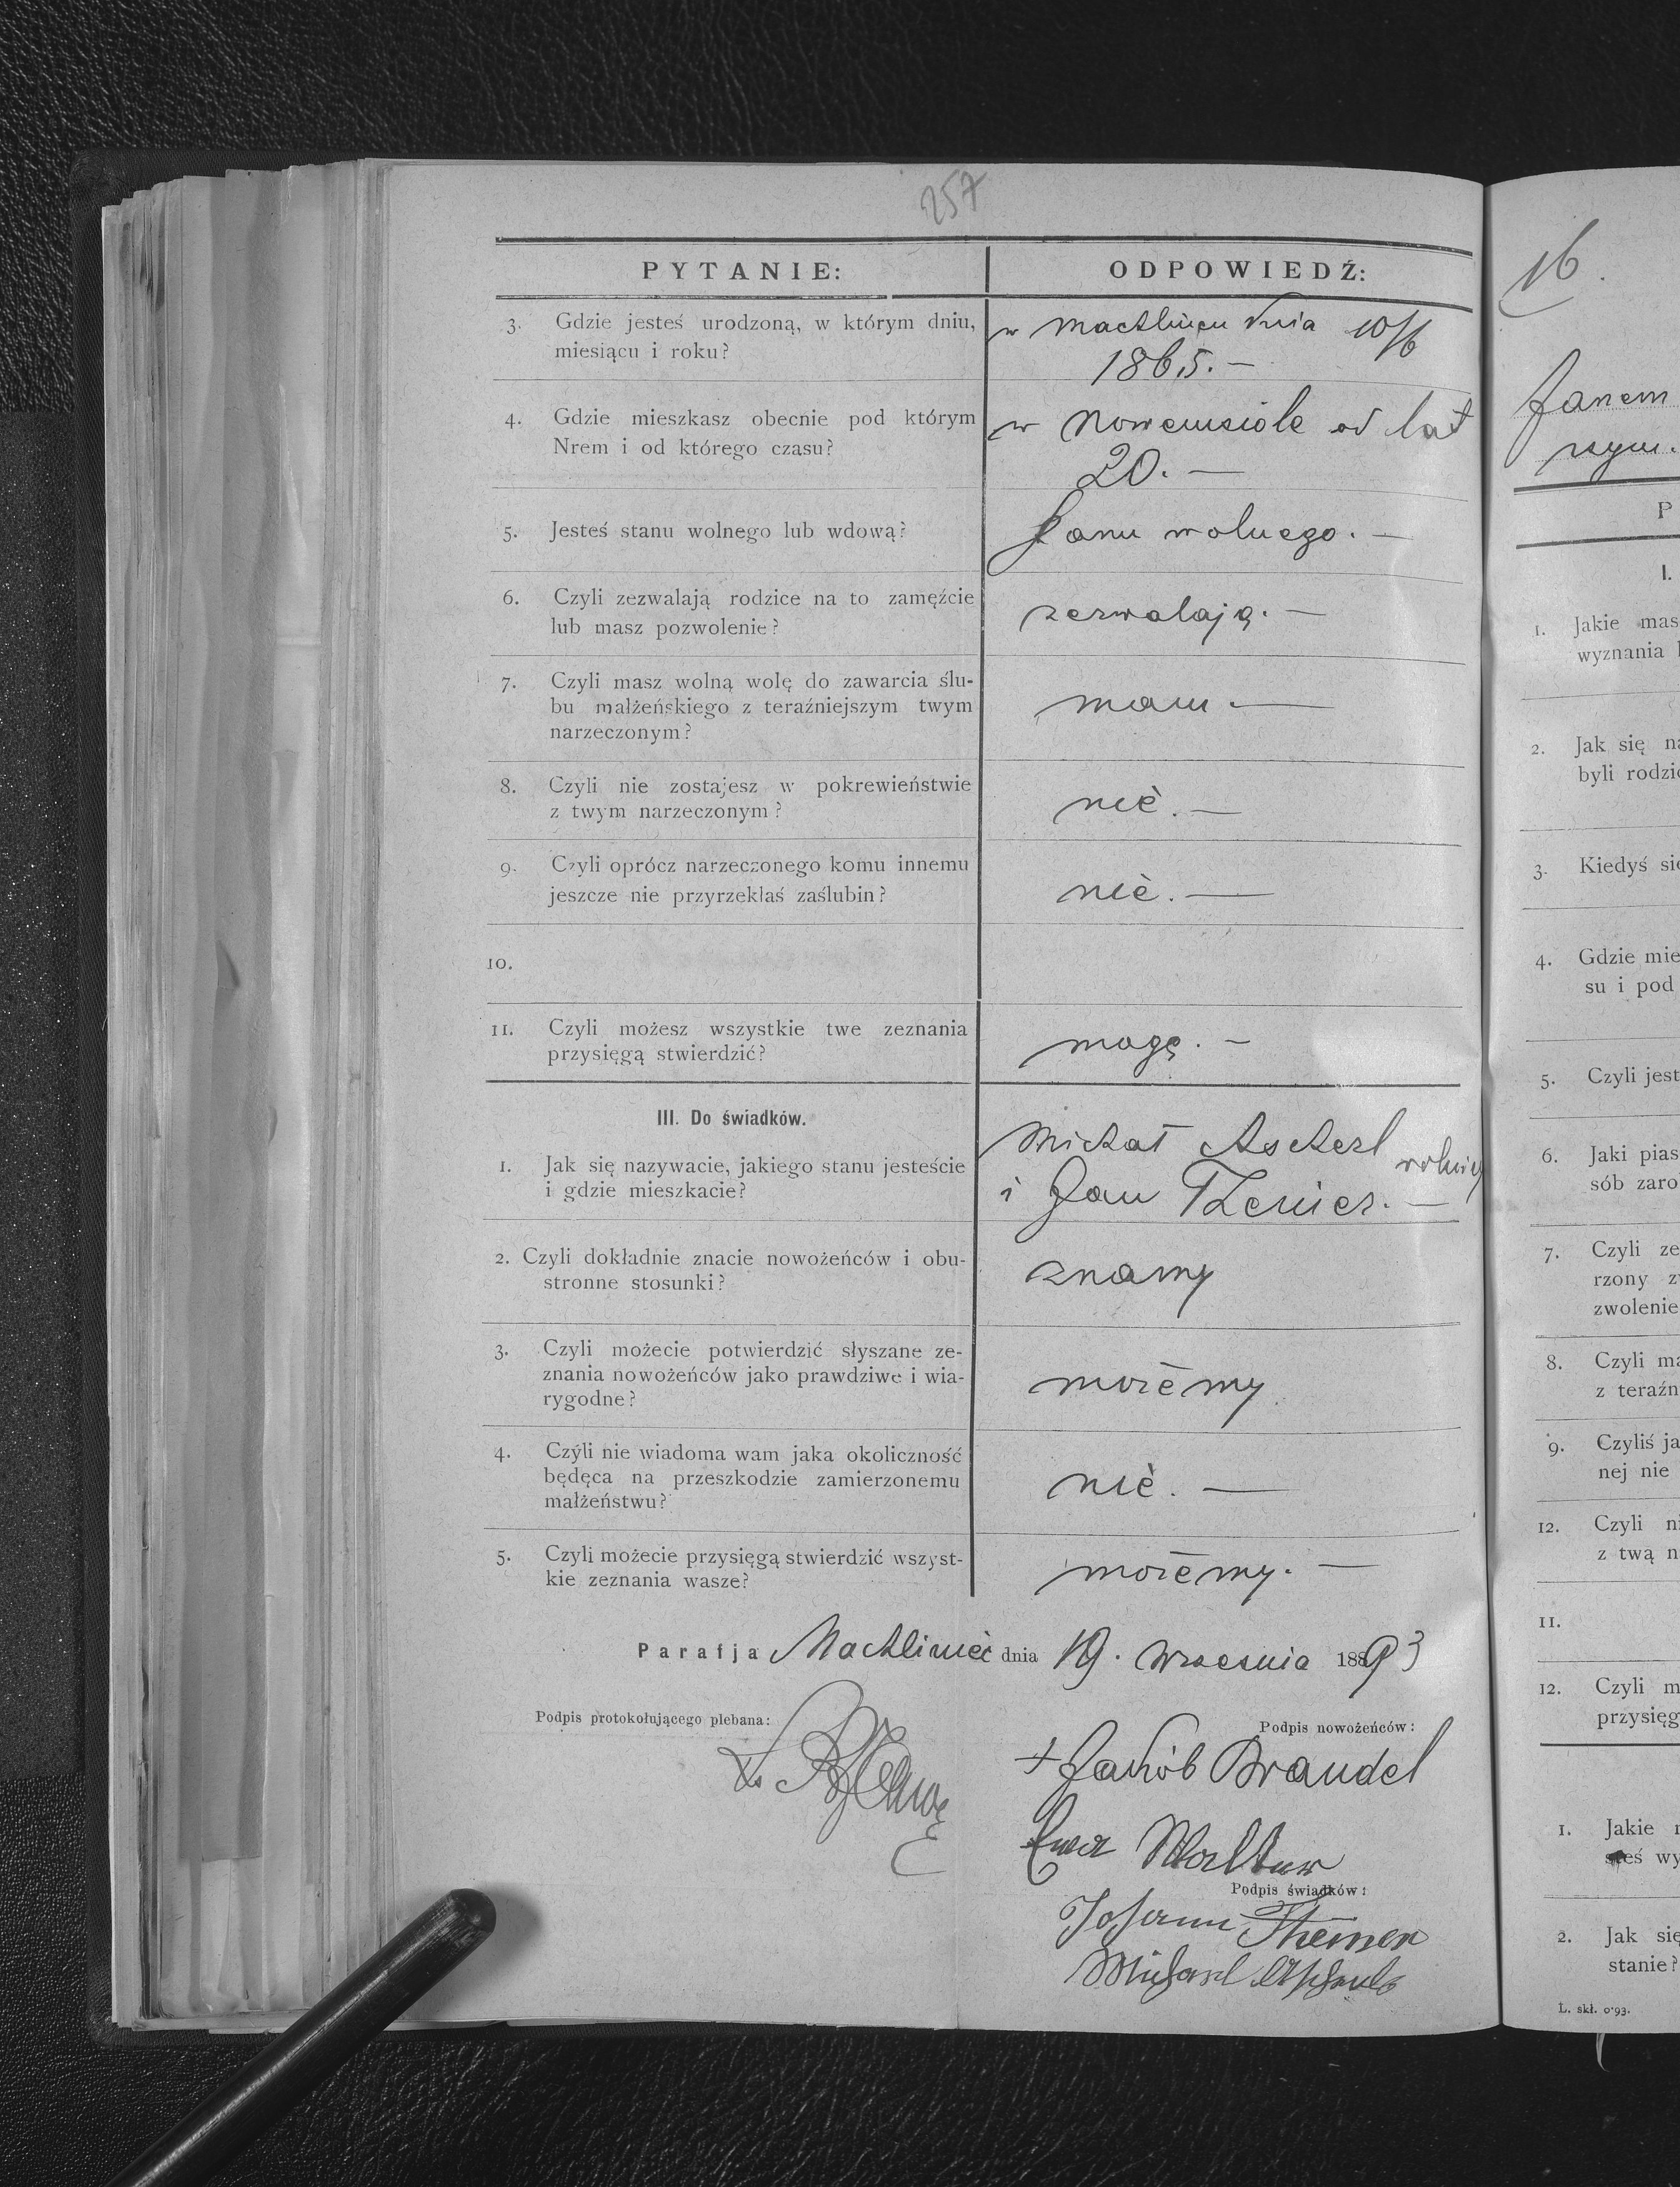 257
PYTANIE:
ODPOWIEDŹ:
3. Gdzie jesteś urodzoną, w którym dniu,
miesiącu i roku?
w Machlińcu dnia 10/6
1865. —
4. Gdzie mieszkasz obecnie pod którym
Nrem i od którego czasu?
w Nowemsiole od lat
20. —
5. Jesteś stanu wolnego lub wdową?
Stanu wolnego. —
6. Czyli zezwalają rodzice na to zamęźcie
lub masz pozwolenie?
zezwalają. —
7. Czyli masz wolną wolę do zawarcia ślu-
bu małżeńskiego z teraźniejszym twym
narzeczonym?
mam. —
8. Czyli nie zostajesz w pokrewieństwie
z twym narzeczonym?
nie. —
9. Czyli oprócz narzeczonego komu innemu
jeszcze nie przyrzekłaś zaślubin?
nie. —
10.
11. Czyli możesz wszystkie twe zeznania
przysięgą stwierdzić?
mogę. —
III. Do świadków.
1. Jak się nazywacie, jakiego stanu jesteście
i gdzie mieszkacie?
Michał Ascherl rolnicy
i Jan Themer. —
2. Czyli dokładnie znacie nowożeńców i obu-
stronne stosunki?
znamy
3. Czyli możecie potwierdzić słyszane ze-
znania nowożeńców jako prawdziwe i wia-
rygodne?
możemy
4. Czyli nie wiadoma wam jaka okoliczność
będęca na przeszkodzie zamierzonemu
małżeństwu?
nie. —
5. Czyli możecie przysięgą stwierdzić wszyst-
kie zeznania wasze?
możemy. —
Parafja Machliniec dnia 19. września 1893
Podpis protokołującego plebana:
Podpis nowożeńców:
+ Jakób Brandel
Ewa Walter
Podpis świadków:
Johann Themer
Michael
16.
Janem
P
I.
1. Jakie mas
wyznania
2. Jak się na
byli rodzic
3. Kiedyś się
4. Gdzie mie
su i pod
5. Czyli jest
6. Jaki pias
sób zaro
7. Czyli ze
rzony z
zwolenie
8. Czyli ma
z teraźn
9. Czyliś ja
nej nie
12. Czyli ni
z twą n
11.
12. Czyli m
przysięg
1. Jakie
steś wy
2. Jak się
stanie?
L. skł. 0·93.